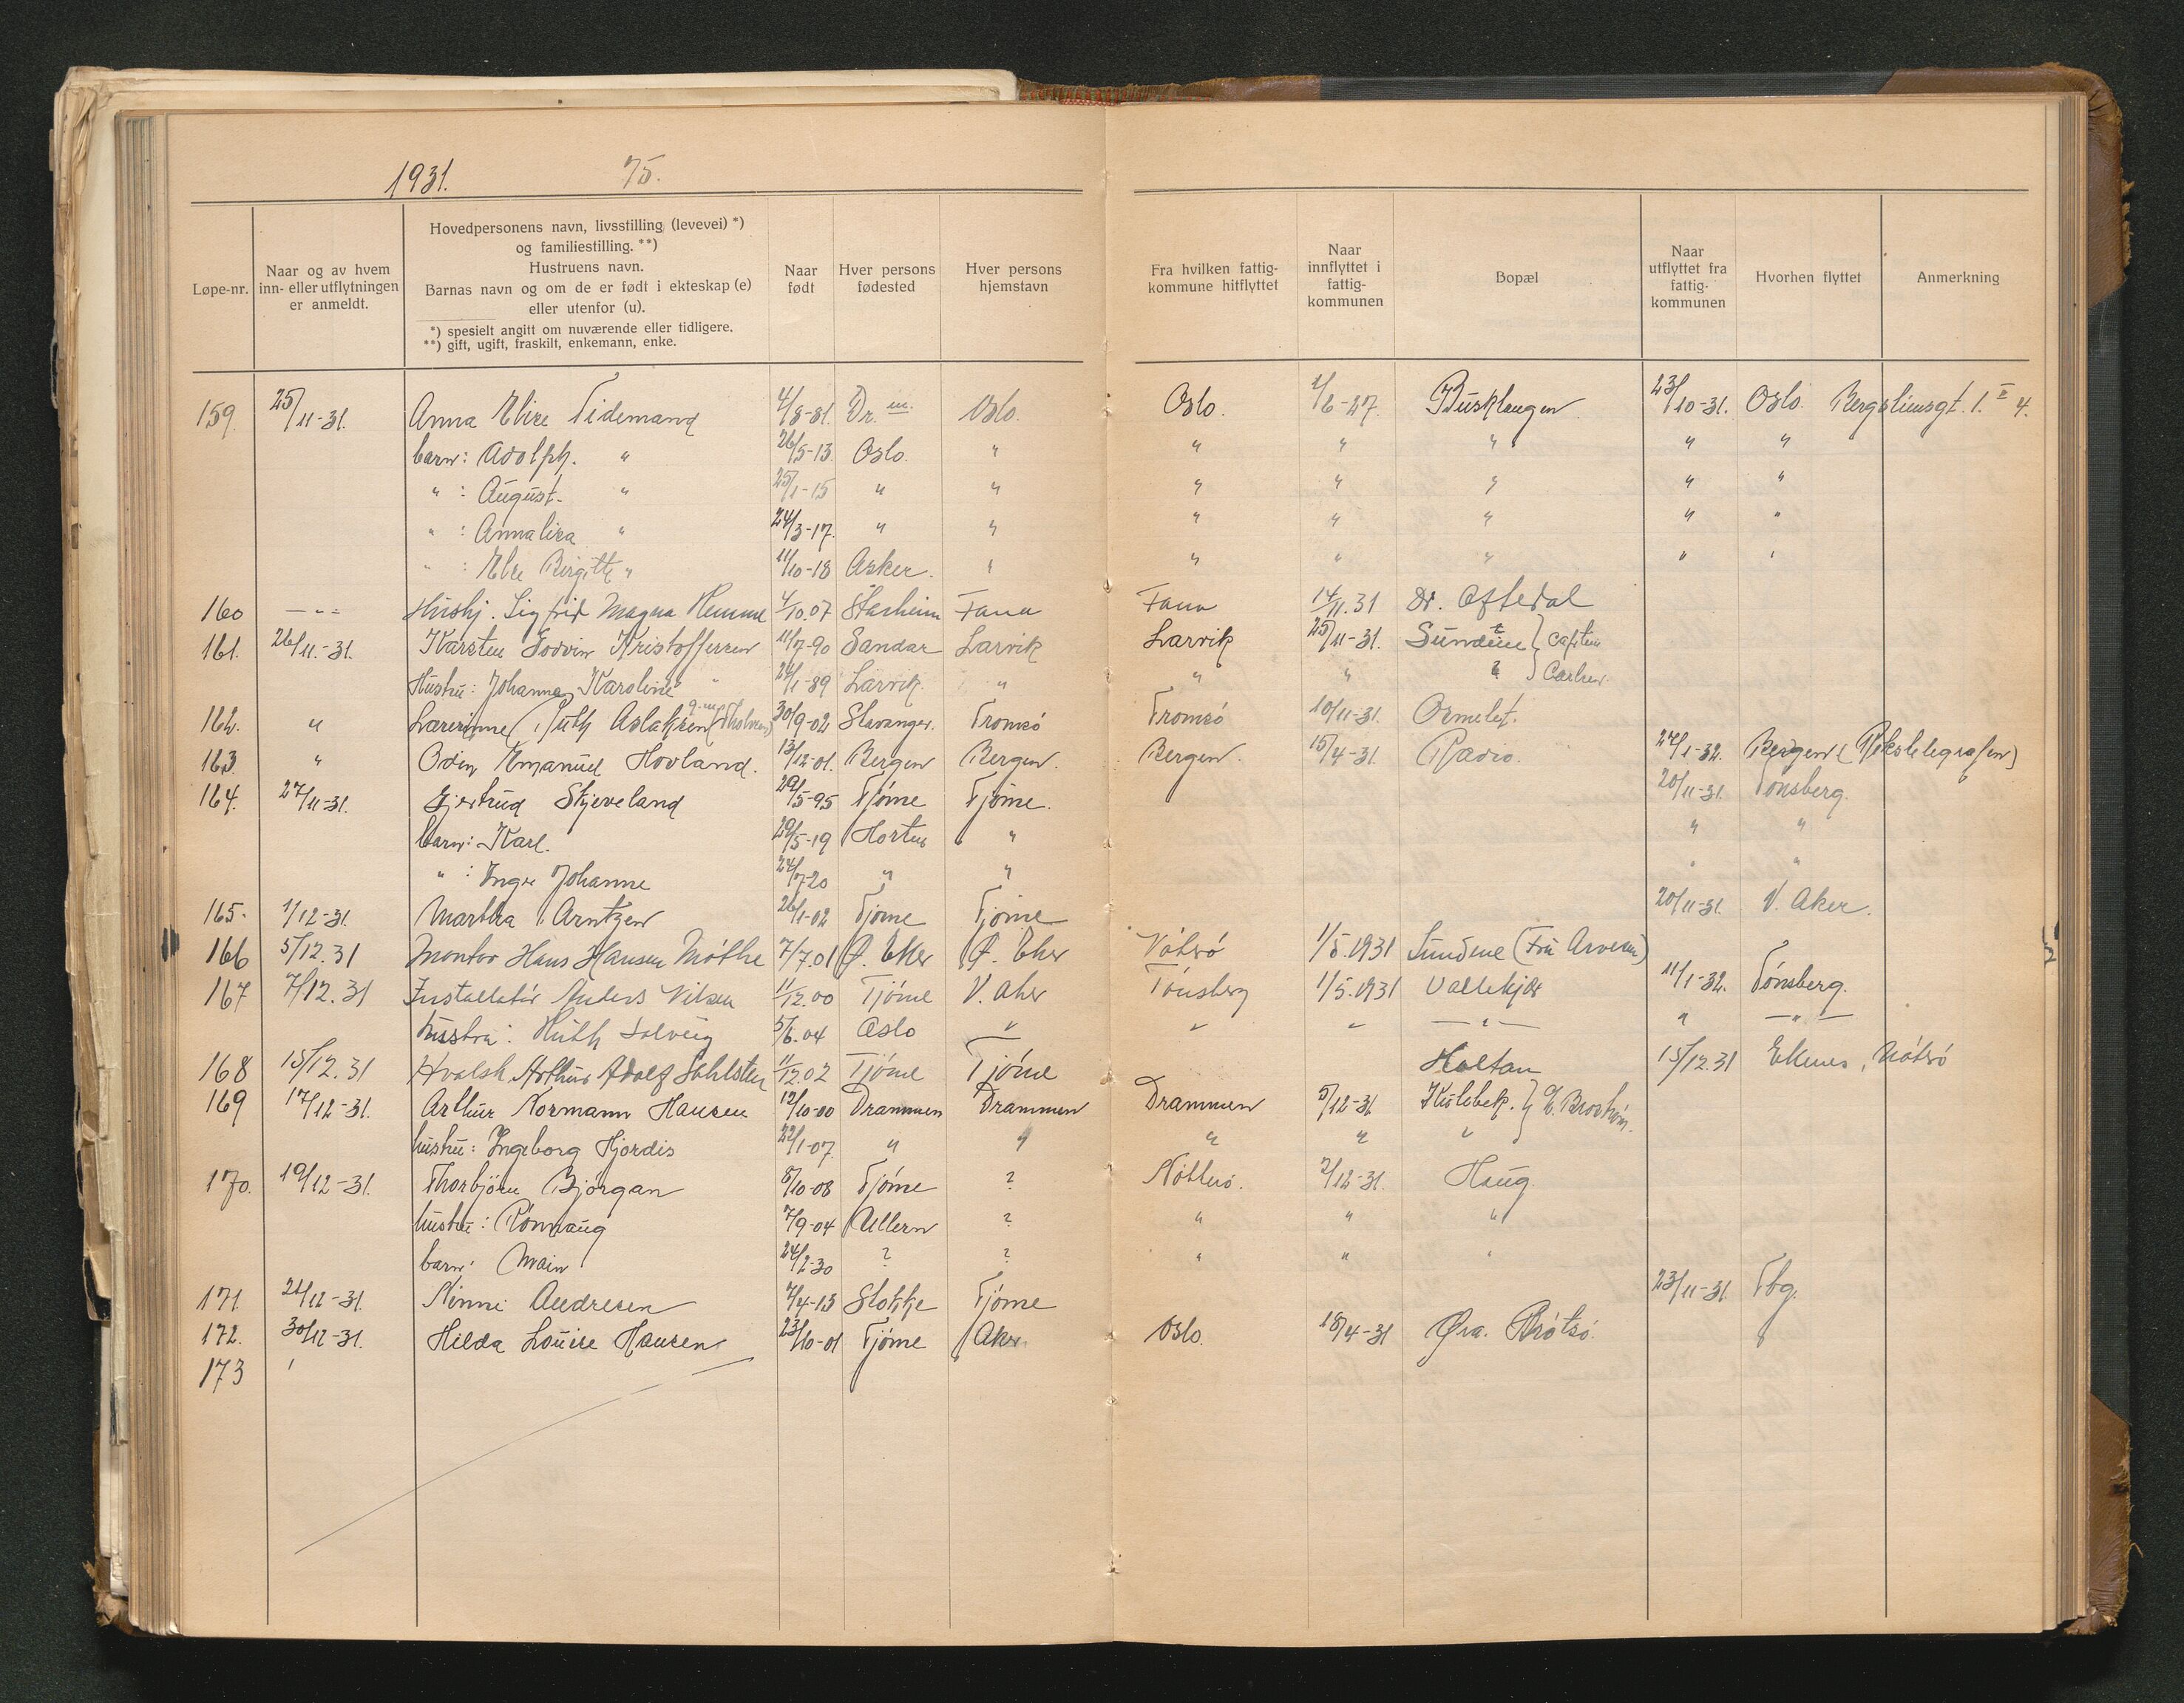 1931. 75.
Løpe-nr.
Naar og av hvem inn- eller utflytningen er anmeldt.
Hovedpersonens navn, livsstilling (levevei) *)
og familiestilling. **)
Hustruens navn.
Barnas navn og om de er født i ekteskap (e)
eller utenfor (u).
*) spesielt angitt om nuværende eller tidligere.
**) gift, ugift, fraskilt, enkemann, enke.
Naar født
Hver persons fødested
Hver persons hjemstavn
Fra hvilken fattig-kommune hitflyttet
Naar innflyttet i fattig-kommunen
Bopæl
Naar utflyttet fra fattig-kommunen
Hvorhen flyttet
Anmerkning
159. 25/11-31. Anna Elise Tidemand 4/8-81. Dr.m. Oslo. Oslo. 1/6-27. Busklangen 23/10-31. Oslo. Bergsliensgt. 1. II 4.
barn: Adolph. " 26/5-13. Oslo. " " " " " "
" : August. " 25/1-15 " " " " " " "
" : Annalisa " 24/3-17. " " " " " " "
" : Else Birgitte " 11/10-18 Asker. " " " " " "
160 -"- Hushj. Sigfrid Magna Hemme 4/10.07 Starheim Fana Fana 14/11.31 Dr. Oftedal
161. 26/11.-31. Karsten Godvin Kristoffersen 11/7-90 Sandar Larvik Larvik 25/11-31. Sundene } Captein
Hustru: Johanna Karoline " 24/1-89 Larvik. " " " " } Carlsen.
162. " Lærerinne Ruth Aslaksen (g.m. Tholvsen) 30/9-02 Stavanger. Tromsö Tromsö 10/11-31. Ormelet.
163 " Odin Emanuel Hovland. 13/12-01. Bergen Bergen. Bergen. 15/4-31. Radio. 27/1-32. Bergen (Rikstelegrafen)
164. 27/11-31. Gjertrud Skjeveland 29/5-95 Tjöme Tjöme. 20/11-31. Tönsberg.
barn: Karl. 29/5-19 Horten " " "
" : Inger Johanne 24/7-20 " " " "
165. 1/12-31. Martha Arntzen 26/1-02 Tjöme Tjöme 20/11-31. V. Aker.
166 5/12.31 Montör Hans Hansen Möthe 7/7.01 Ø. Eker Ø. Eker Nöterö 1/5.1931 Sundene (Fru Arvesen)
167 7/12.31 Installatör Anders Nilsen 11/12.00 Tjöme V. Aker Tönsberg 1/5.1931 Vallekjær 11/1-32. Tönsberg.
hustru: Ruth Solveig 5/6.04 Oslo " " " -"- " -"-
168 15/12.31 Hvalf. Arthur Adolf Dahlsten 11/12.02 Tjöme Tjöme Holtan 15/12.31 Ekenes, Nöterö
169 17/12-31. Arthur Normann Hansen 12/10-00 Drammen Drammen Drammen 5/12-31 Kulebek. } G. Broström.
hustru: Ingeborg Hjördis 22/1-07. " " " " "
170. 19/12-31. Thorbjörn Björgan 8/10-08 Tjöme ? Nötterö. 2/12-31. Haug.
hustru: Rönnaug 7/9-04 Ullern ? " " "
barn: Main 24/2-30 ? ? " " "
171. 21/12-31. Ninni Andresen 7/4-13 Stokke Tjöme 23/11-31. Tbg.
172. 30/12-31. Hilda Louise Hansen 23/10-01 Tjöme Aker. Oslo. 18/4-31 Øra. Brötsö.
173